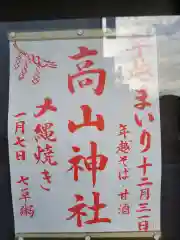 まいり十二月三一日
年越そば 甘酒
高山神社
〆縄焼き
一月七日 七草粥